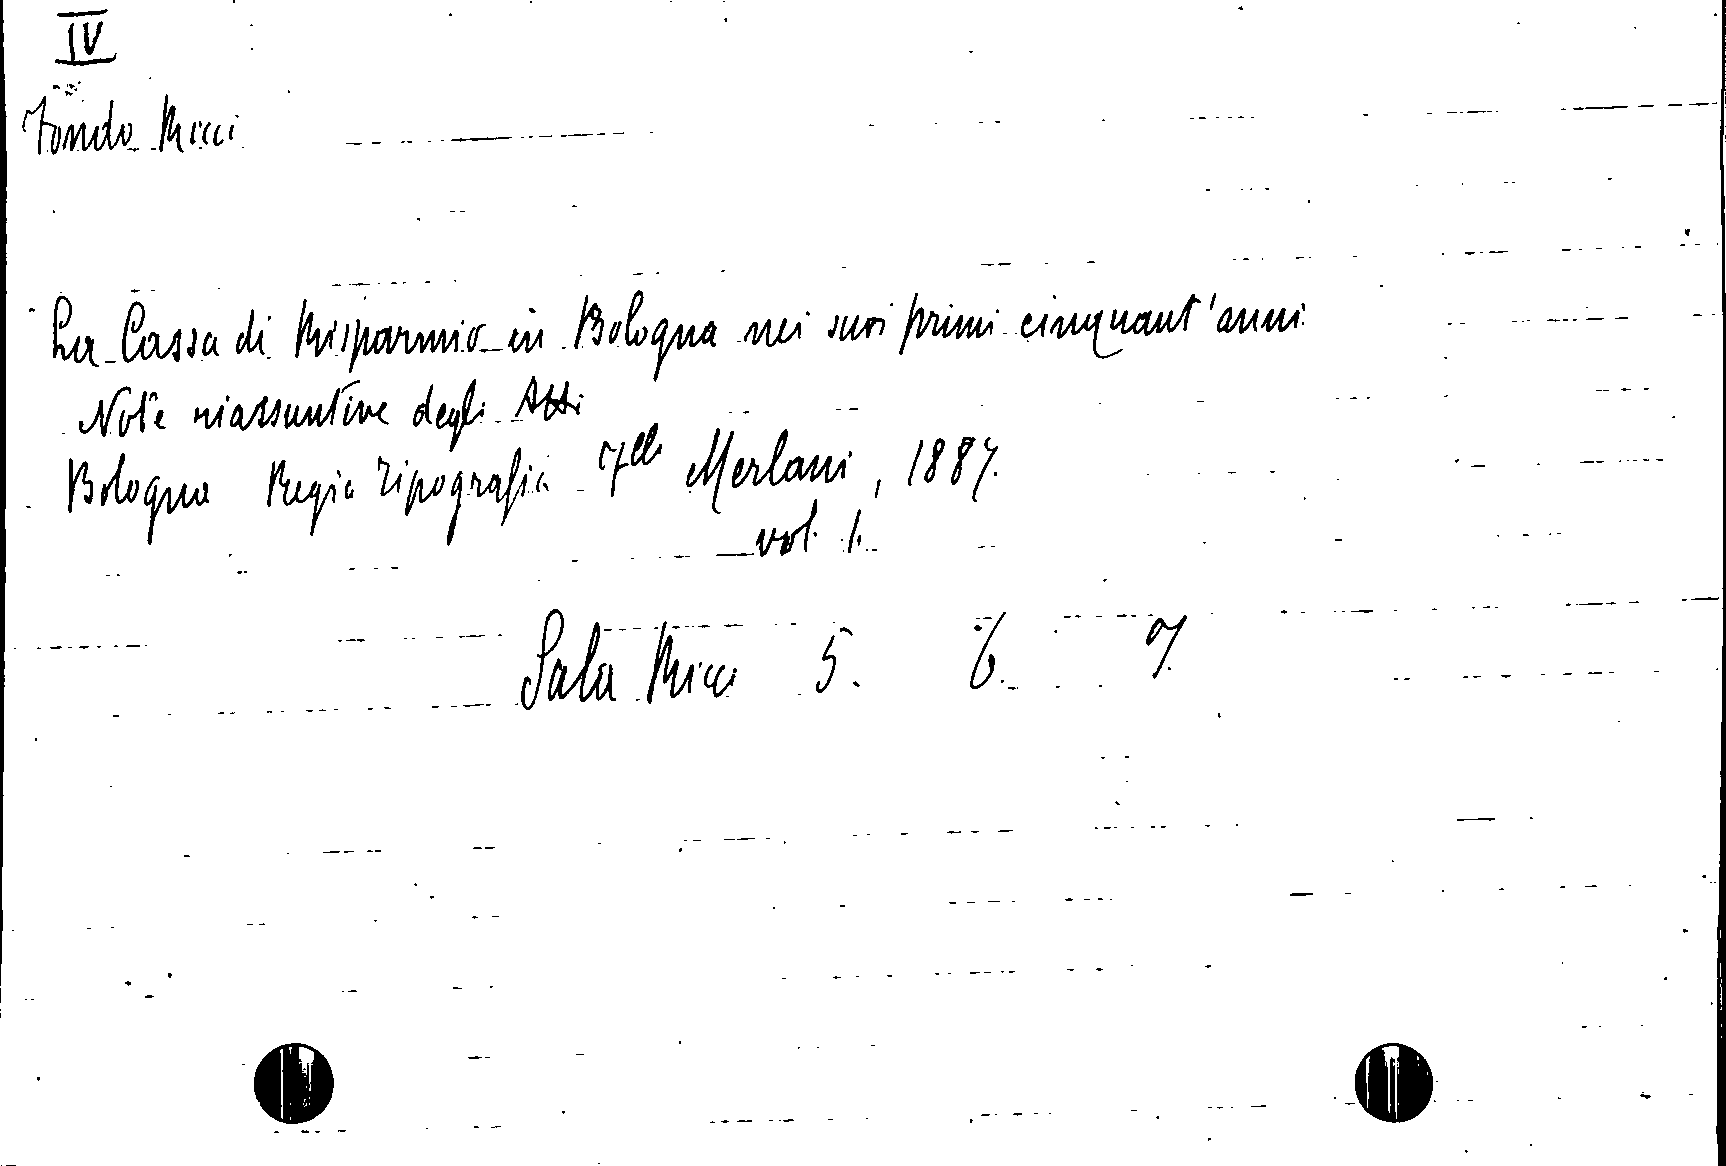 IV
Fondo Ricci
La Cassa di Risparmio in Bologna nei suoi primi cinquant'anni.
Note riassuntive degli Atti
Bologna Regia Tipografia Flli Merlani, 1887.
vol. 1.
Sala Ricci 5. 6. 7.